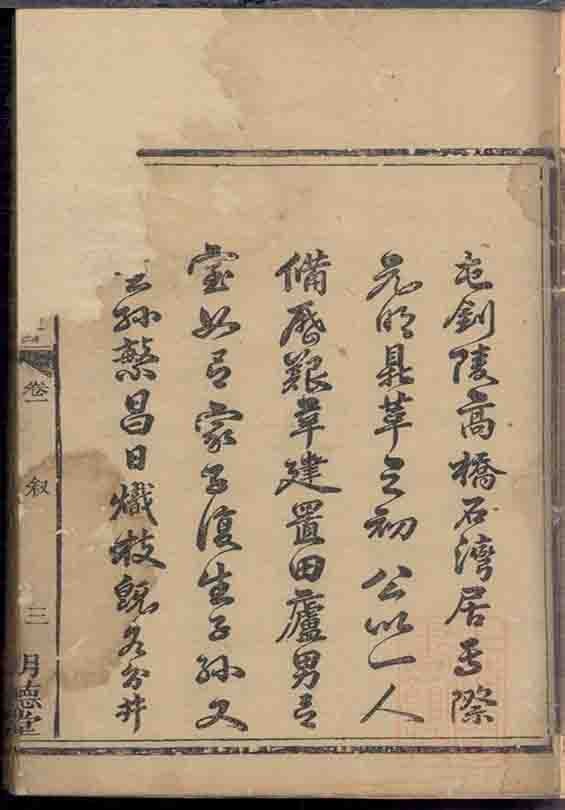 屯釗陵高橋石灣居焉際
元明鼎革之初公以一人
備歷艱辛建置田廬男有
室女有家子復生子孫又
生孫繁昌日熾枝既各分井
卷一
叙
三
明德堂